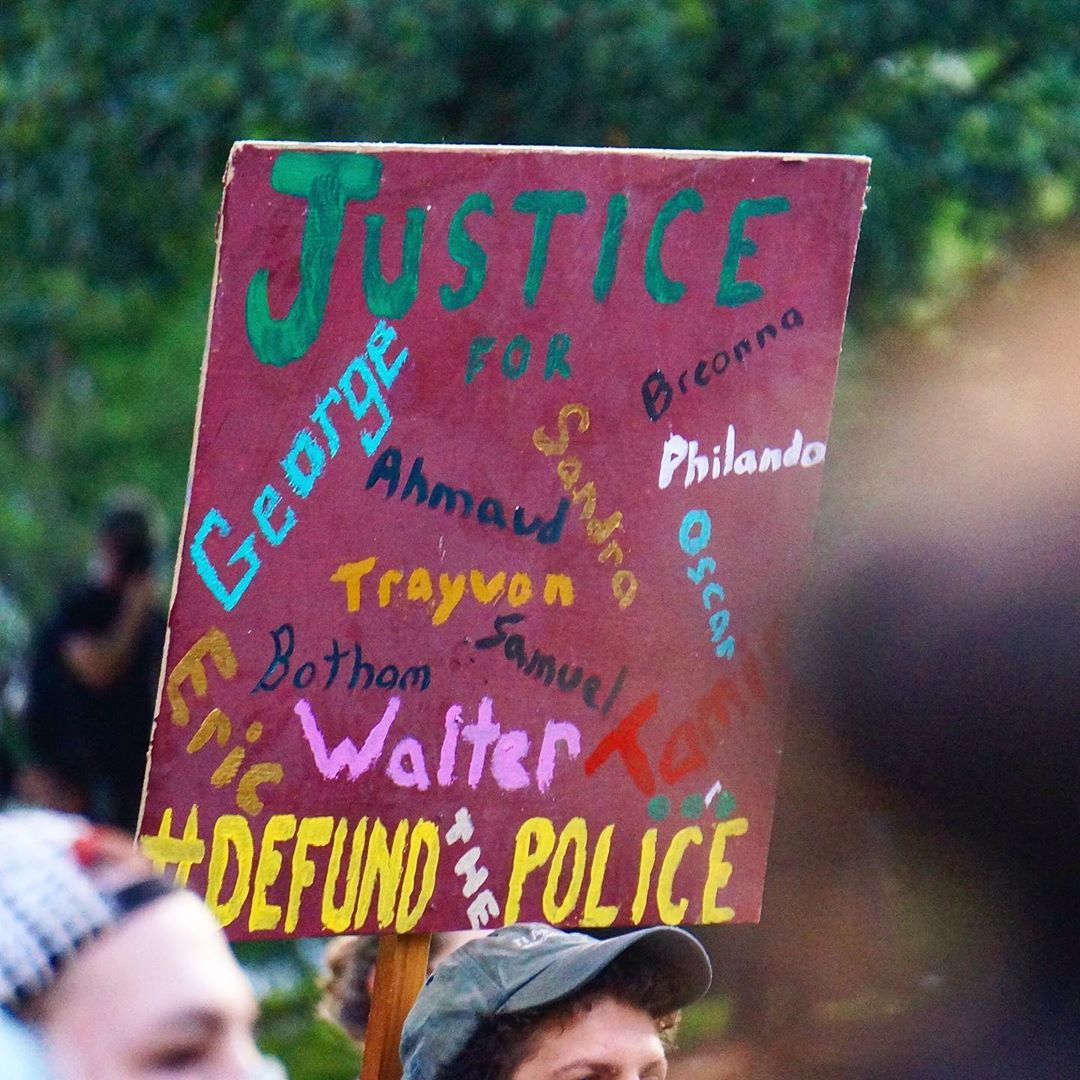 JUSTICE
FOR
Breonna
George
Sandra
Philando
Ahmaud
Oscar
Trayvon
Samuel
Botham
Eric
Walter
Tamir
...
#DEFUND THE POLICE